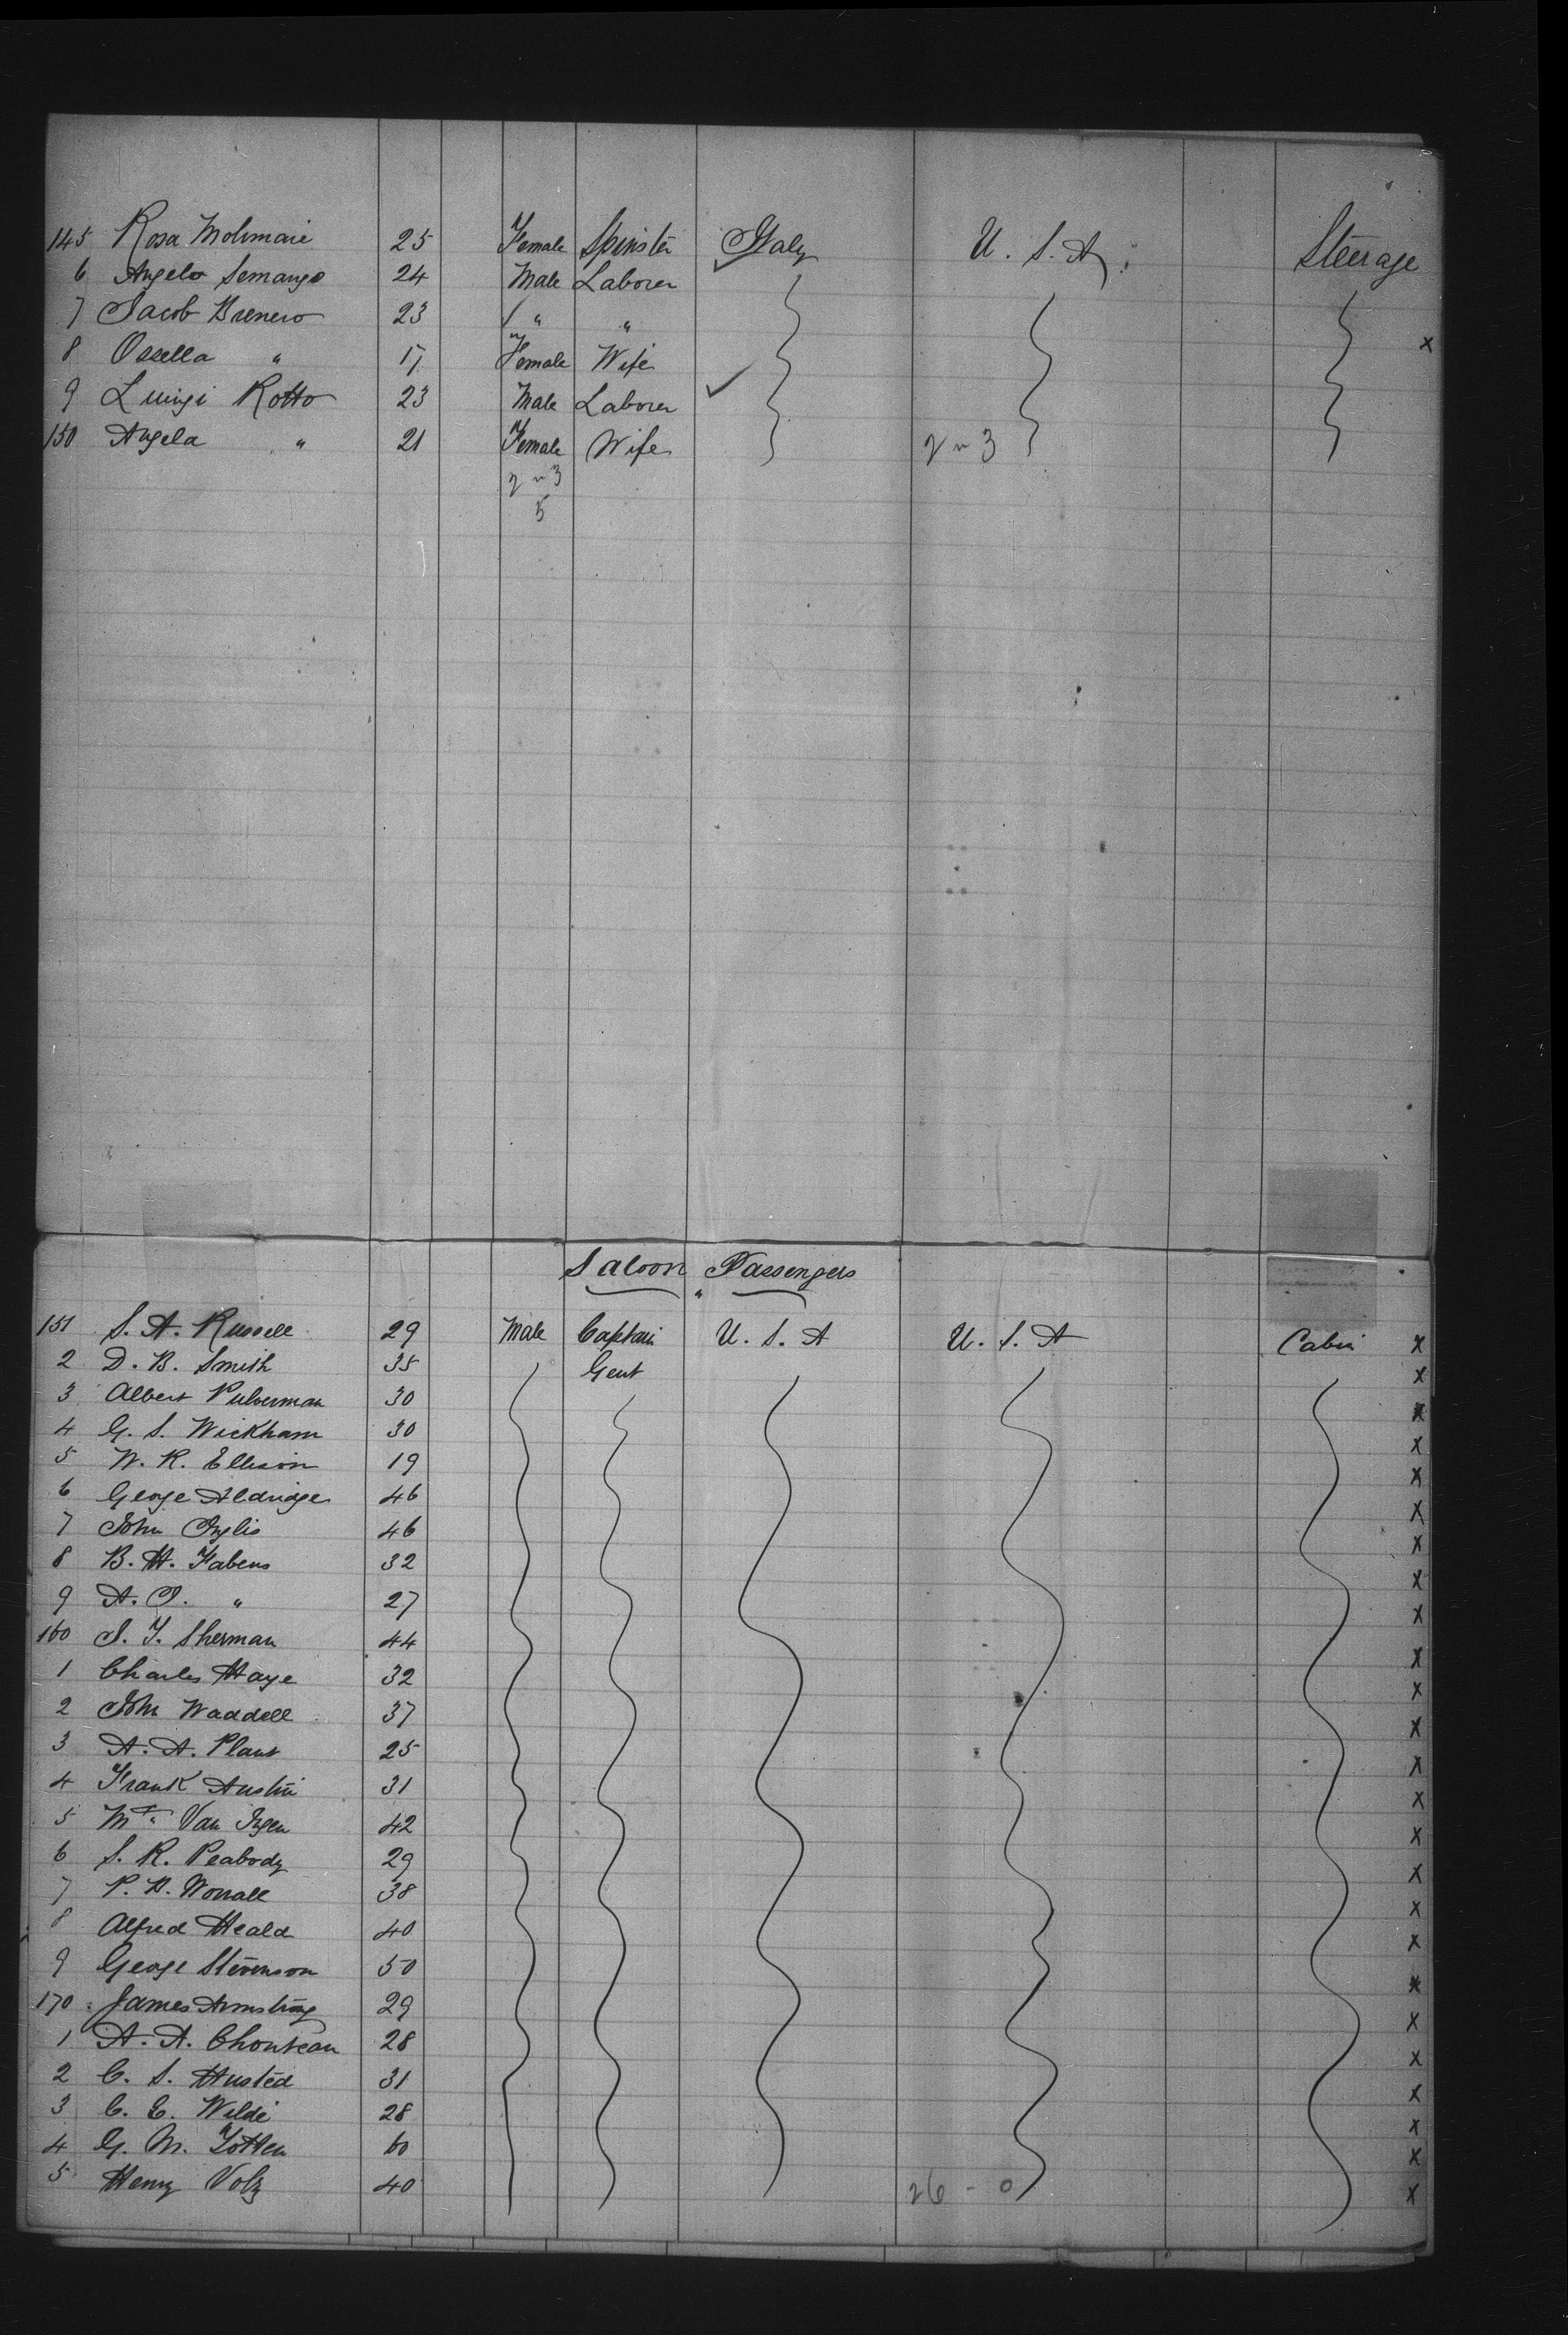 145 Rosa Molimarie 25 Female Spinster Italy U. S. A. Steerage
6 Angelo Semango 24 Male Laborer
7 Jacob Brenero 23 " "
8 Ossella " 17 Female Wife x
9 Luingi Rotto 23 Male Laborer
150 Angela " 21 Female Wife 2 ~ 3
2 ~ 3
5
Saloon " Passengers
151 S. A. Russell 29 Male Captain U. S. A U. S. A Cabin x
2 D. B. Smith 35 Gent x
3 Albert Pulverman 30 x
4 G. S. Wickham 30 x
5 W. R. Ellison 19 x
6 George Aldridge 46 x
7 John Inglis 46 x
8 B. H. Fabens 32 x
9 A. I. " 27 x
160 I. T. Sherman 44 x
1 Charles Haye 32 x
2 John Waddell 37 x
3 A. A. Plant 25 x
4 Frank Austin 31 x
5 Van Ingen 42 x
6 S. R. Peabody 29 x
7 P. B. Worrall 38 x
8 Alfred Heald 40 x
9 George Stevenson 50 x
170 James Armstrong 29 x
1 A. A. Chouteau 28 x
2 C. S. Husted 31 x
3 C. E. Wilde 28 x
4 G. M. Totten 60 x
5 Henry Volz 40 26 - 0 x